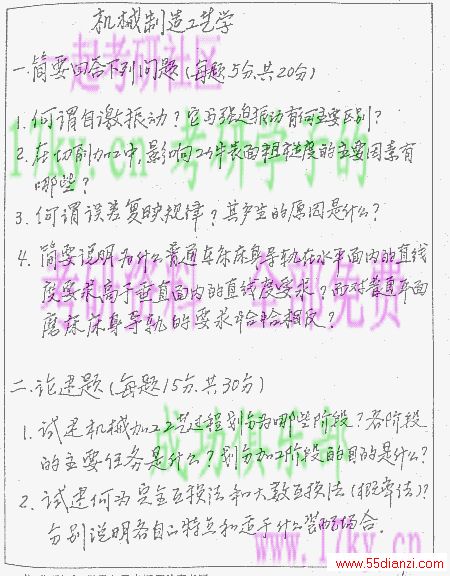 机械制造工艺学
一起考研社区
一.简要回答下列问题(每题5分,共20分)
1. 何谓自激振动？它与强迫振动有何主要区别？
17ky.cn 考研学子的
2. 在切削加工中,影响工件表面粗糙度的主要因素有
哪些？
3. 何谓误差复映规律？其产生的原因是什么？
4. 简要说明为什么普通车床床身导轨在水平面内的直线
度要求高于垂直面内的直线度要求？而对普通平面
考研资料 全部免费
磨床床身导轨的要求恰恰相反？
二.论述题(每题15分,共30分)
1. 试述机械加工工艺过程划分为哪些阶段？各阶段
成功俱乐部
的主要任务是什么？划分加工阶段的目的是什么？
2. 试述何为完全互换法和大数互换法(概率法)？
分别说明各自的特点和适于什么装配场合.
www.17ky.cn
www.55dianzi.com